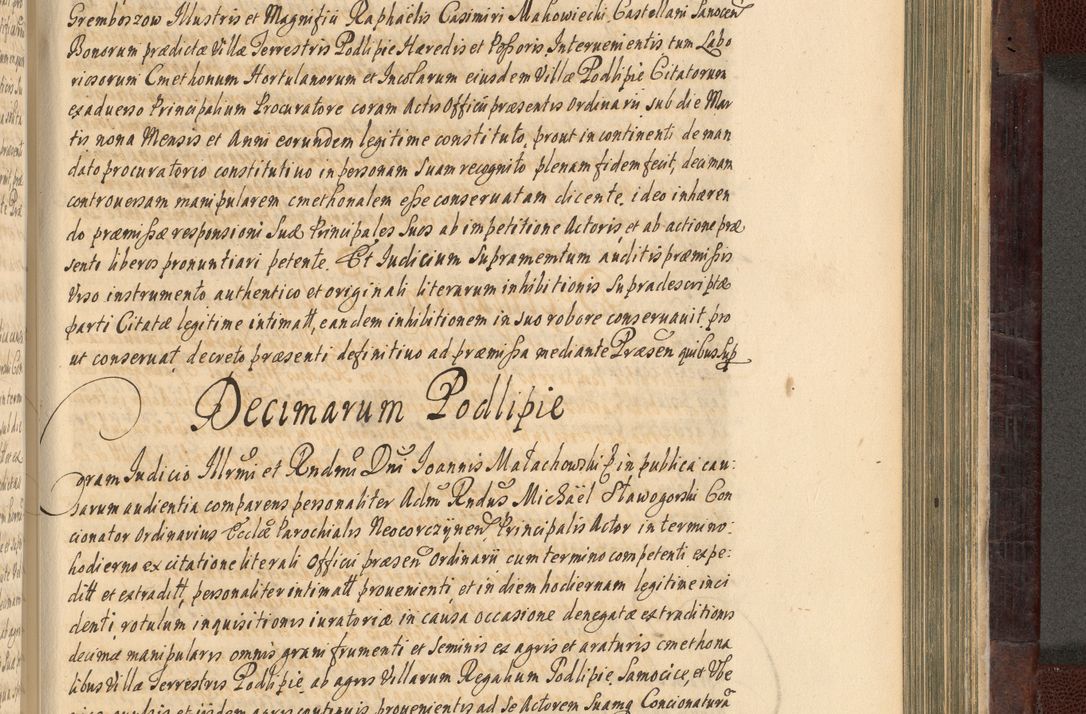 Gremboszow Illustris et Magnifici Raphaelis Casimiri Makowiecki Castellani Sanocen
Bonorum prædictæ Villæ Terrestris Podlipie Hæredis et Poſsoris Intervenientis tum Labo
riosorum Cmethonum Hortulanorum et Incolarum eiusdem Villæ Podlipie Citatorum
ex aduerso Principalium Procuratore coram Actis Officii præsentis Ordinarii sub die Mar
tis nona Mensis et Anni eorundem legitime constituto, prout in continenti de man
dato procuratorio constitutiuo in personam Suam recognito plenam fidem fecit, decimam
controuersam manipularem cmethonalem eſse conseruatam dicente, ideo inhæren
do præmiſsæ responsioni Suæ Principales Suos ab impetitione Actoris et ab actione præ
senti liberos pronuntiari petente. Et Iudicium Supramemtum auditis præmiſsis
Viso instrumento authentico et originali literarum inhibitionis Supradescriptæ
parti Citatæ legitime intimatt, eandem inhibitionem in suo robore conseruauit pro
ut conseruat, decreto præsenti definitiuo ad præmiſsa mediante Præsen quibus Sup
Decimarum Podlipie
Coram Iudicio Illrmi et Rndmi Dni Ioannis Małachowski &c in publica cau:
sarum audientia comparens personaliter Adm Rndus Michaël Sławogorski Con
cionator Ordinarius Ecclæ Parochialis Neocorczÿnen Principalis Actor in termino:
hodierno ex citatione literali Officii præsen Ordinarii cum termino competenti expe:
ditt et extraditt, personaliter intimatt prouenienti, et in diem hodiernam legitime inci
denti, rotulum inquisitionis iuratoriæ in causa occasione denegatæ extraditionis
decimæ manipularis omnis grani frumenti et Seminis ex agris et araturis cmethona
libus Villæ Terrestris Podlipie, ab agris Villarum Regalium Podlipie, Sanocice, et Vbe
et iisdem agris continuis prouenientis ad Se Actorem Suamq Concionatura